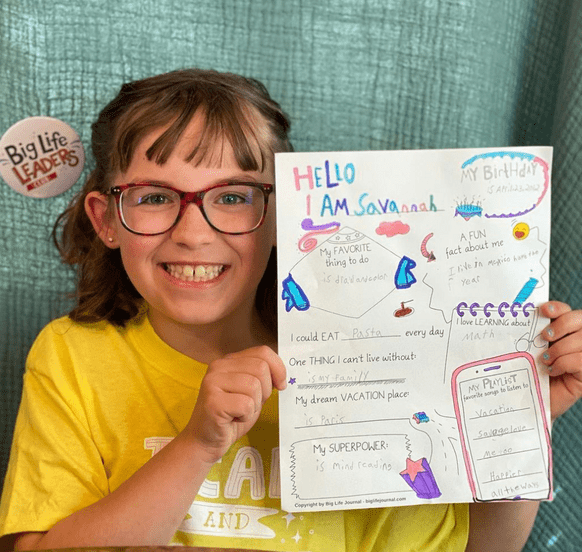 Big Life
LEADERS
CLUB
HELLO
I AM Savannah
MY BirthDAY
My FAVORITE
thing to do
is draw and color
A FUN
fact about me
I live in
year
I could EAT Pasta every day
One THING I can't live without:
is my family
My dream VACATION place:
is Paris
My SUPERPOWER:
is Mind reading
I love LEARNING about
Math
MY PLAYLIST
favorite songs to listen to
Vacation
savage love
Me too
Happier
all the way
AND
Copyright by Big Life Journal - biglifejournal.com